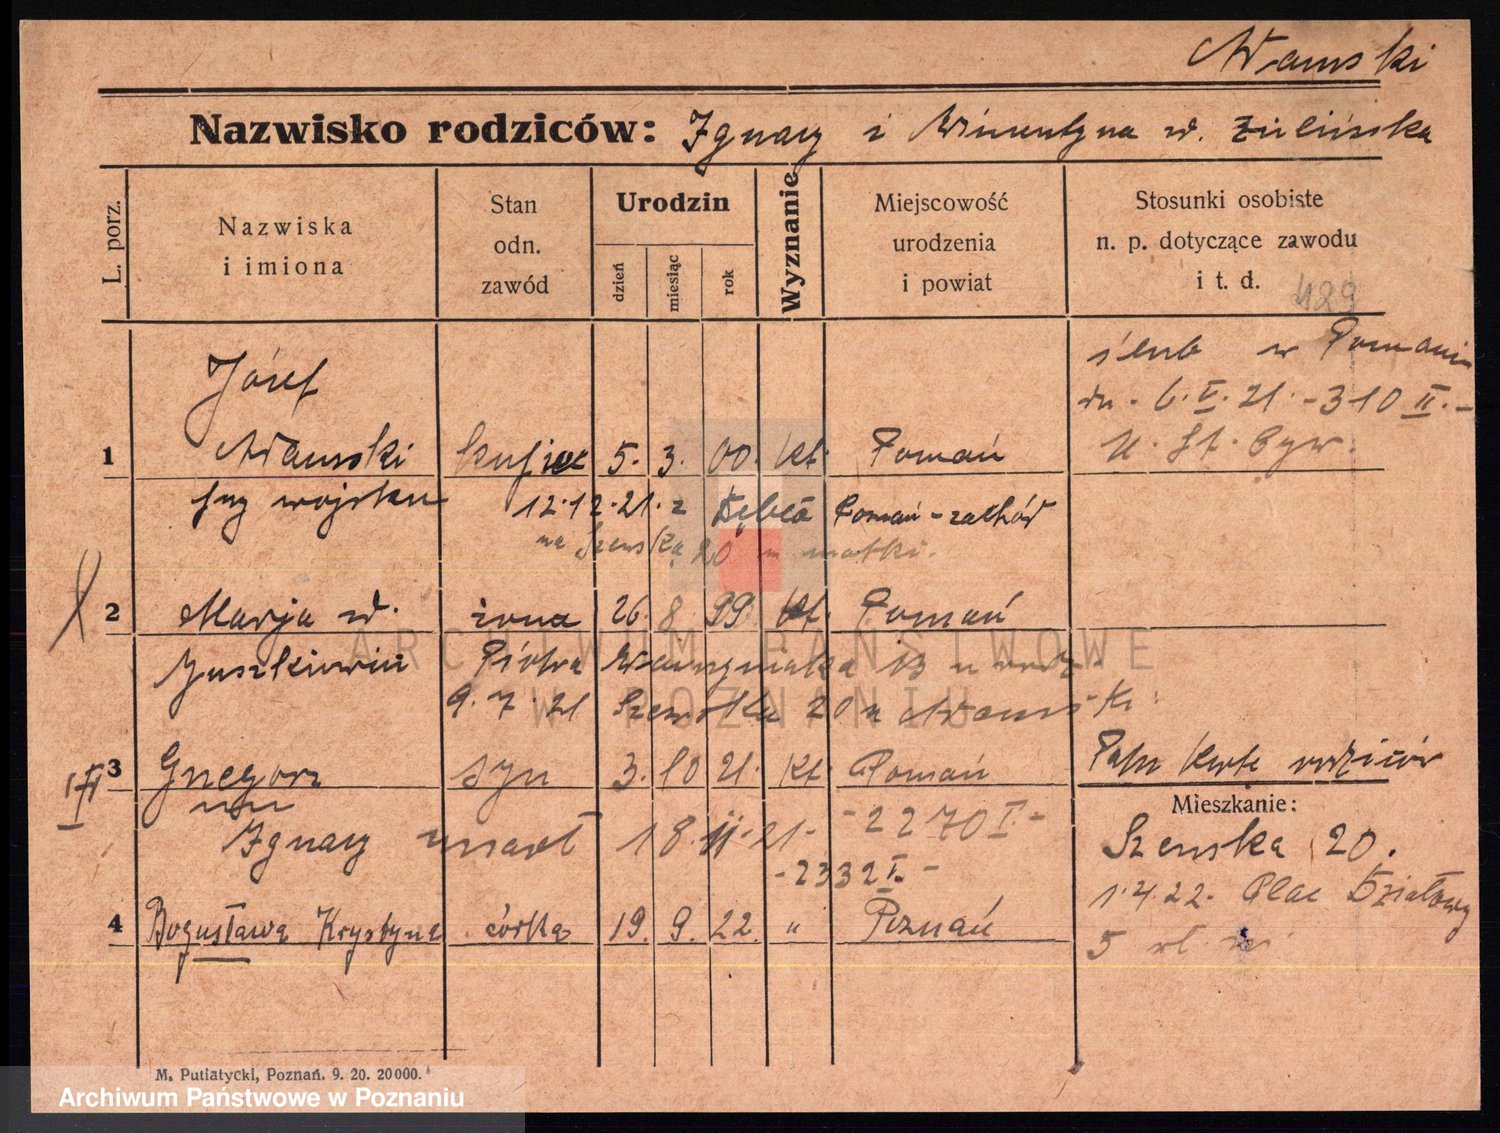 Nazwisko rodziców: Ignacy i
L. porz.
Nazwiska
i imiona
Stan
odn.
zawód
Urodzin
dzień
miesiąc
rok
Wyznanie
Miejscowość
urodzenia
i powiat
Stosunki osobiste
n. p. dotyczące zawodu
i t. d.
429
Józef
ślub w Poznaniu
dn. 6.V.21. - 310 II. -
U. St. Cyw.
1 5. 3. 00. kt. Poznań
12.12.21. z Dębca Poznań-zachód
na 20 u matki.
2 Marja żona 26. 8. 99. kt. Poznań
Piotra 13 u rodz.
9. 7. 21 20 u
3 Grzegorz syn 3. 10 21. kt. Poznań
rodziców
Mieszkanie:
Ignacy umarł 18. 11. 21 - - 2270 I -
- 2332 I. -
20.
1.4.22. Plac Działowy
5
4 Bogusława Krystyna córka 19. 9. 22. " Poznań
M. Putiatycki, Poznań. 9. 20. 20000.
ARCHIWUM PAŃSTWOWE
W POZNANIU
Archiwum Państwowe w Poznaniu